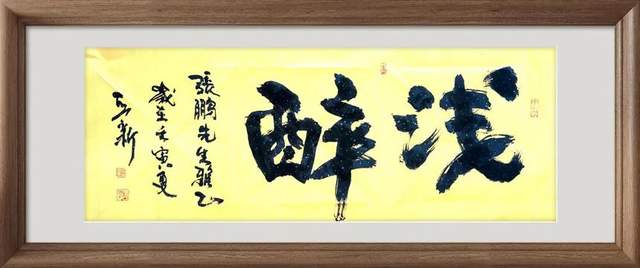 浅醉
張鹏先生雅正
歲在壬寅夏